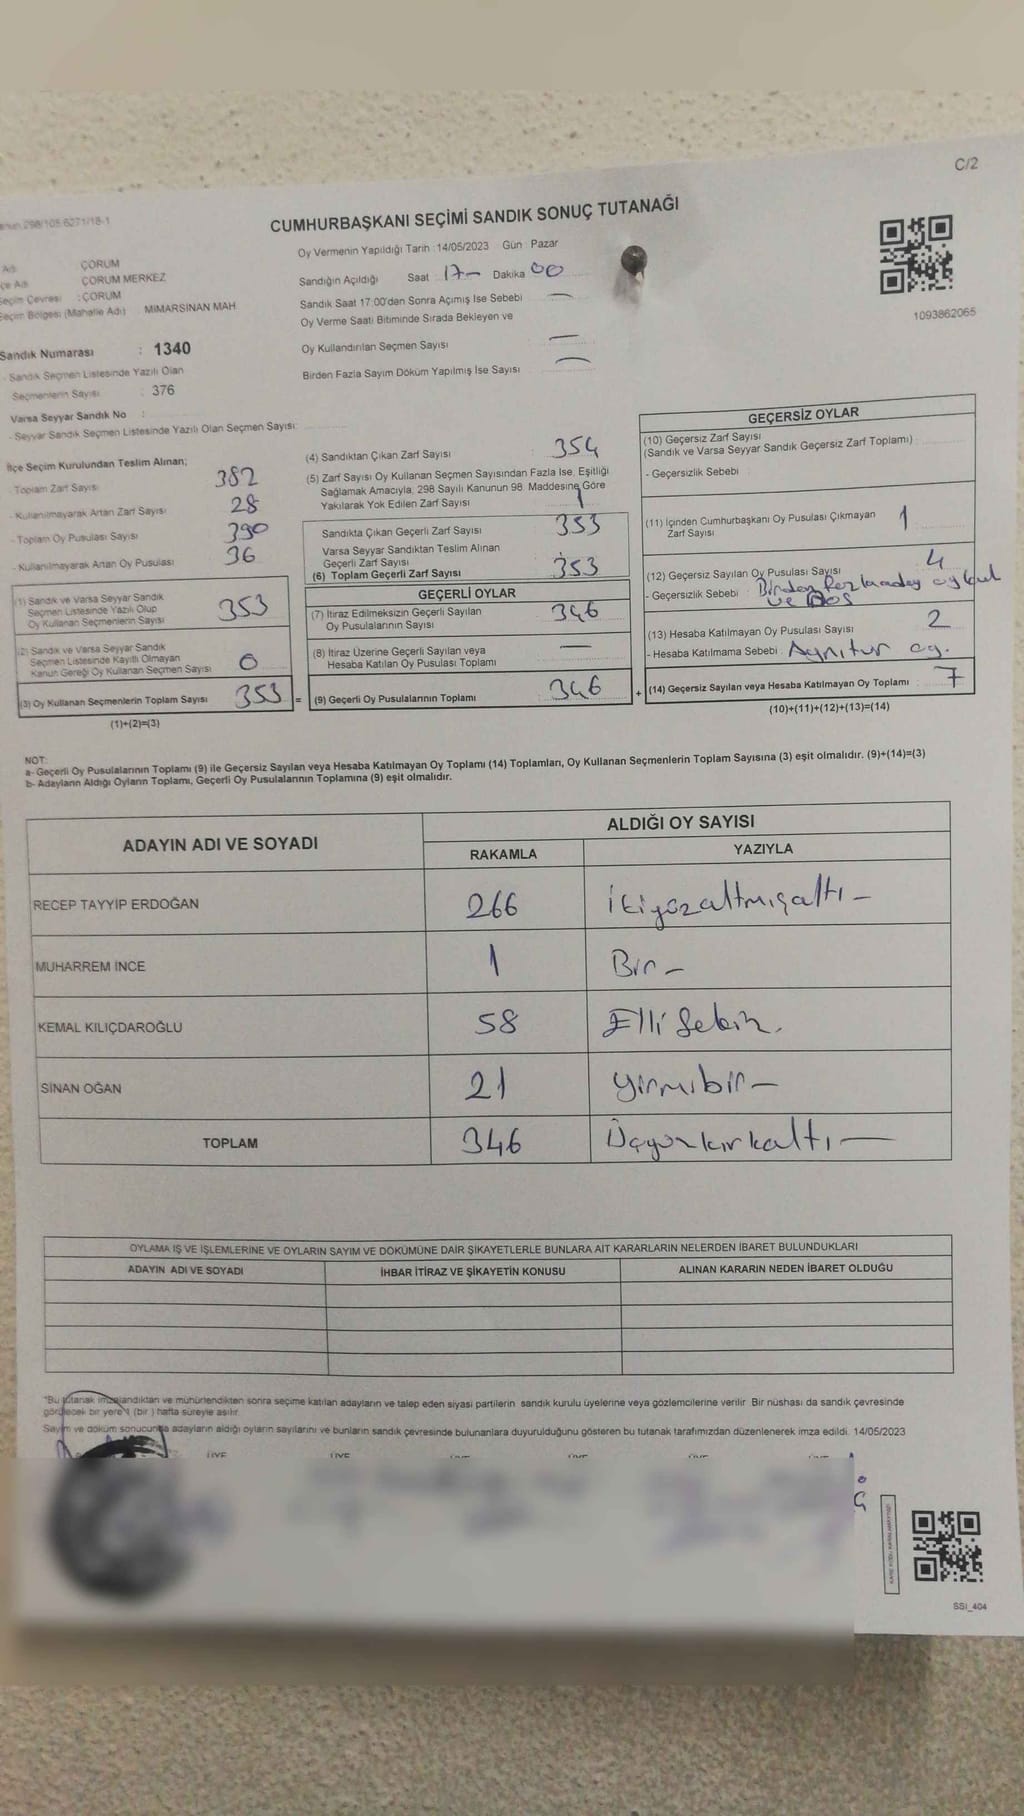 C/2
298/105.6271/18-1
CUMHURBAŞKANI SEÇİMİ SANDIK SONUÇ TUTANAĞI
Oy Vermenin Yapıldığı Tarih : 14/05/2023 Gün : Pazar
Adı ÇORUM
Adı ÇORUM MERKEZ
Seçim Çevresi : ÇORUM
Seçim Bölgesi (Mahalle Adı) MİMARSİNAN MAH
Sandığın Açıldığı Saat 17- Dakika 00
Sandık Saat 17:00'den Sonra Açımış İse Sebebi —
Oy Verme Saati Bitiminde Sırada Bekleyen ve
Oy Kullandırılan Seçmen Sayısı —
Birden Fazla Sayım Döküm Yapılmış İse Sayısı —
1093862065
Sandık Numarası : 1340
- Sandık Seçmen Listesinde Yazılı Olan
Seçmenlerin Sayısı : 376
Varsa Seyyar Sandık No :
- Seyyar Sandık Seçmen Listesinde Yazılı Olan Seçmen Sayısı:
İlçe Seçim Kurulundan Teslim Alınan;
- Toplam Zarf Sayısı 382
- Kullanılmayarak Artan Zarf Sayısı 28
- Toplam Oy Pusulası Sayısı 390
- Kullanılmayarak Artan Oy Pusulası 36
(1) Sandık ve Varsa Seyyar Sandık
Seçmen Listesinde Yazılı Olup
Oy Kullanan Seçmenlerin Sayısı 353
(2) Sandık ve Varsa Seyyar Sandık
Seçmen Listesinde Kayıtlı Olmayan
Kanun Gereği Oy Kullanan Seçmen Sayısı 0
(3) Oy Kullanan Seçmenlerin Toplam Sayısı 353
(1)+(2)=(3)
(4) Sandıktan Çıkan Zarf Sayısı : 354
(5) Zarf Sayısı Oy Kullanan Seçmen Sayısından Fazla İse, Eşitliği
Sağlamak Amacıyla, 298 Sayılı Kanunun 98. Maddesine Göre
Yakılarak Yok Edilen Zarf Sayısı 1
Sandıkta Çıkan Geçerli Zarf Sayısı 353
Varsa Seyyar Sandıktan Teslim Alınan
Geçerli Zarf Sayısı
(6) Toplam Geçerli Zarf Sayısı : 353
GEÇERLİ OYLAR
(7) İtiraz Edilmeksizin Geçerli Sayılan
Oy Pusulalarının Sayısı 346
(8) İtiraz Üzerine Geçerli Sayılan veya
Hesaba Katılan Oy Pusulası Toplamı —
= (9) Geçerli Oy Pusulalarının Toplamı : 346 +
GEÇERSİZ OYLAR
(10) Geçersiz Zarf Sayısı
(Sandık ve Varsa Seyyar Sandık Geçersiz Zarf Toplamı) :
- Geçersizlik Sebebi :
(11) İçinden Cumhurbaşkanı Oy Pusulası Çıkmayan
Zarf Sayısı 1
(12) Geçersiz Sayılan Oy Pusulası Sayısı 4
- Geçersizlik Sebebi : Birden fazla aday
ve Boş
(13) Hesaba Katılmayan Oy Pusulası Sayısı 2
- Hesaba Katılmama Sebebi : Aynıtür oy.
(14) Geçersiz Sayılan veya Hesaba Katılmayan Oy Toplamı : 7
(10)+(11)+(12)+(13)=(14)
NOT:
a- Geçerli Oy Pusulalarının Toplamı (9) ile Geçersiz Sayılan veya Hesaba Katılmayan Oy Toplamı (14) Toplamları, Oy Kullanan Seçmenlerin Toplam Sayısına (3) eşit olmalıdır. (9)+(14)=(3)
b- Adayların Aldığı Oyların Toplamı, Geçerli Oy Pusulalarının Toplamına (9) eşit olmalıdır.
ADAYIN ADI VE SOYADI ALDIĞI OY SAYISI
RAKAMLA YAZIYLA
RECEP TAYYİP ERDOĞAN 266 İkiyüzaltmışaltı —
MUHARREM İNCE 1 Bir —
KEMAL KILIÇDAROĞLU 58 Elli Sekiz.
SİNAN OĞAN 21 yirmibir —
TOPLAM 346 Üçyüzkırkaltı —
OYLAMA İŞ VE İŞLEMLERİNE VE OYLARIN SAYIM VE DÖKÜMÜNE DAİR ŞİKAYETLERLE BUNLARA AİT KARARLARIN NELERDEN İBARET BULUNDUKLARI
ADAYIN ADI VE SOYADI İHBAR İTİRAZ VE ŞİKAYETİN KONUSU ALINAN KARARIN NEDEN İBARET OLDUĞU
*Bu tutanak imzalandıktan ve mühürlendikten sonra seçime katılan adayların ve talep eden siyasi partilerin sandık kurulu üyelerine veya gözlemcilerine verilir. Bir nüshası da sandık çevresinde
görülecek bir yere 1 (bir ) hafta süreyle asılır.
Sayım ve döküm sonucunda adayların aldığı oyların sayılarını ve bunların sandık çevresinde bulunanlara duyurulduğunu gösteren bu tutanak tarafımızdan düzenlenerek imza edildi. 14/05/2023
ÜYE ÜYE ÜYE ÜYE ÜYE ÜYE
SSI_404